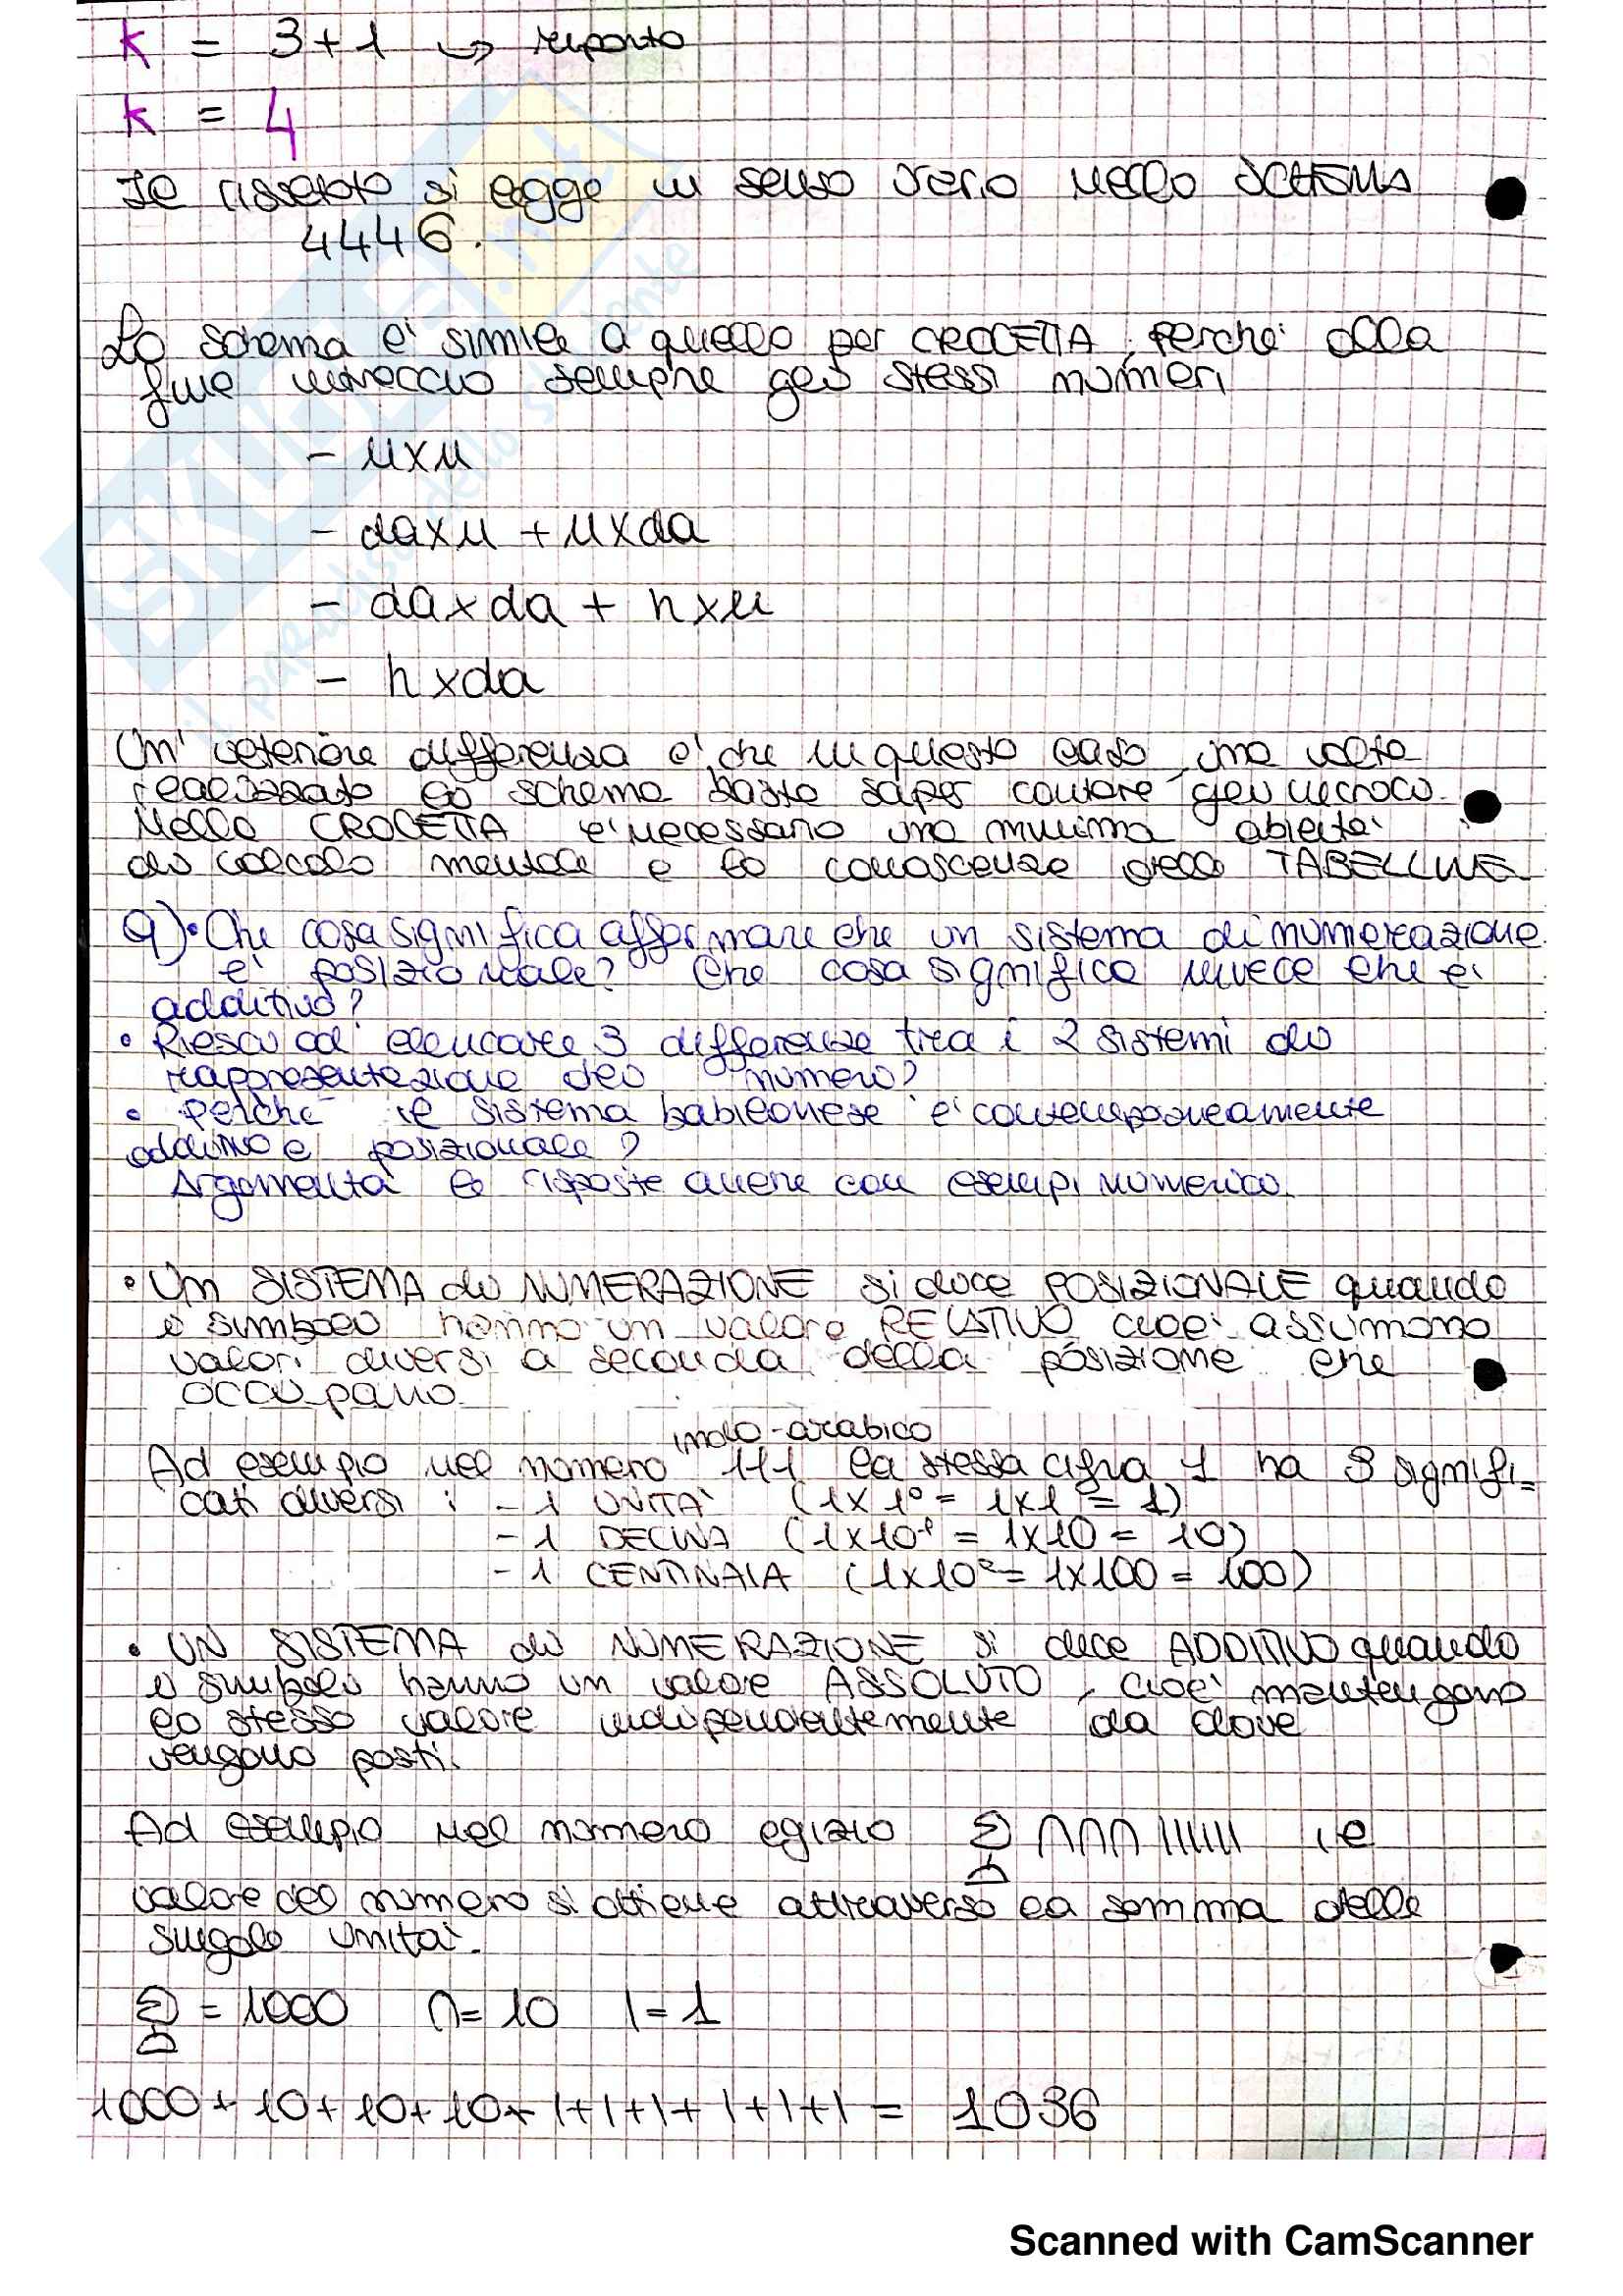 k = 3+1 → riporto
k = 4
Il risultato si legge in senso orario nello SCHEMA
4446.
Lo schema e' simile a quello per CROCETTA, perche' alla
fine intreccio sempre gli stessi numeri
- u×u
- da×u + u×da
- da×da + h×u
- h×da
Un' ulteriore differenza e' che in questo caso, una volta
realizzato lo schema basta saper contare gli incroci.
Nella CROCETTA e' necessario una minima abilita'
di calcolo mentale e la conoscenza delle TABELLINE
9)• Che cosa significa affermare che un sistema di numerazione
e' posizionale? Che cosa significa invece che e'
additivo?
• Riesci ad elencare 3 differenze tra i 2 sistemi di
rappresentazione del numero?
• Perche' il sistema babilonese e' contemporaneamente
additivo e posizionale?
Argomenta le risposte anche con esempi numerici.
• Un SISTEMA di NUMERAZIONE si dice POSIZIONALE quando
i simboli hanno un valore RELATIVO cioe' assumono
valori diversi a seconda della posizione che
occupano.
indo-arabico
Ad esempio nel numero 111 la stessa cifra 1 ha 3 signifi-
cati diversi: - 1 UNITA' (1×1⁰ = 1×1 = 1)
- 1 DECINA (1×10¹ = 1×10 = 10)
- 1 CENTINAIA (1×10² = 1×100 = 100)
• UN SISTEMA di NUMERAZIONE si dice ADDITIVO quando
i simboli hanno un valore ASSOLUTO, cioe' mantengono
lo stesso valore indipendentemente da dove
vengono posti.
Ad esempio nel numero egizio ∩∩∩ |||||| il
valore del numero si ottiene attraverso la somma delle
singole unita'.
= 1000 ∩= 10 |= 1
1000 + 10 + 10 + 10 + 1+1+1+1+1+1 = 1036
SKUOLA.net
il paradiso dello studente
Scanned with CamScanner